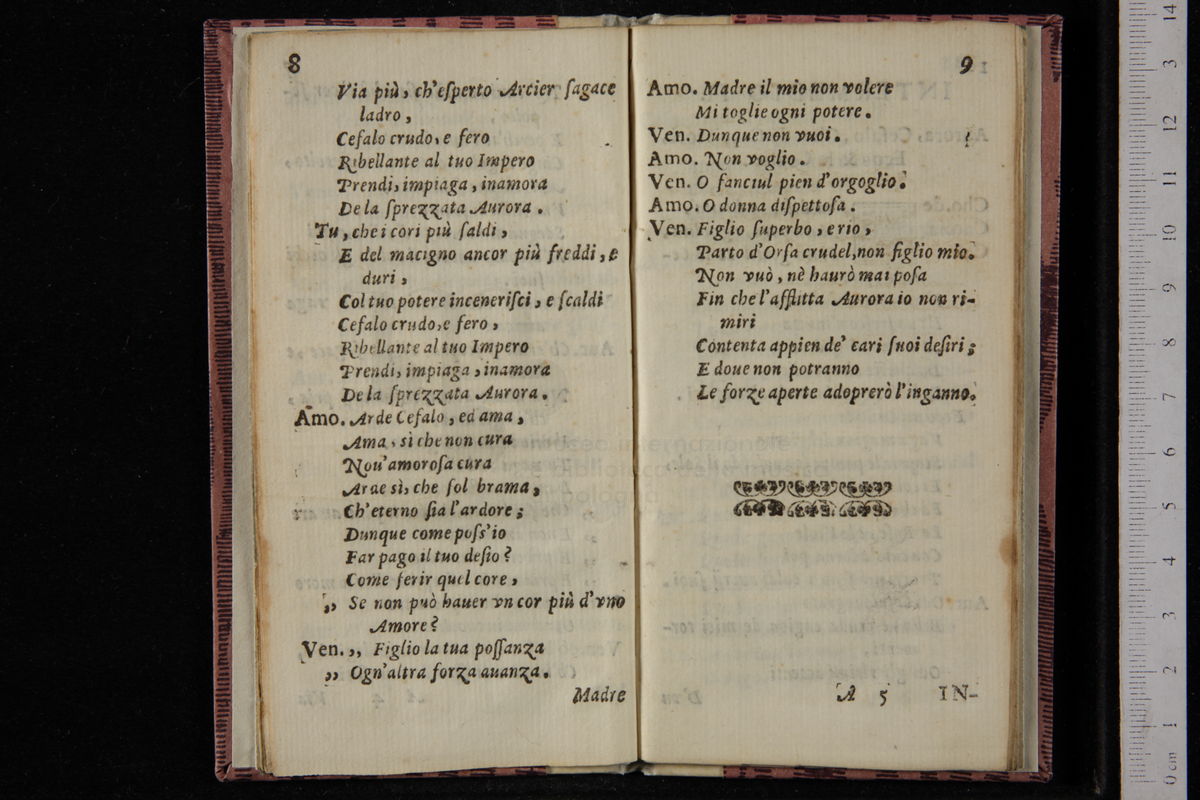 8
Via più, ch'eſperto Arcier ſagace
ladro,
Cefalo crudo, e fero
Ribellante al tuo Impero
Prendi, impiaga, inamora
De la ſprezzata Aurora.
Tu, che i cori più ſaldi,
E del macigno ancor più freddi, e
duri,
Col tuo potere inceneriſci, e ſcaldi
Cefalo crudo, e fero,
Ribellante al tuo Impero
Prendi, impiaga, inamora
De la ſprezzata Aurora.
Amo. Arde Cefalo, ed ama,
Ama, sì che non cura
Nou'amoroſa cura
Arde sì, che ſol brama,
Ch'eterno ſia l'ardore;
Dunque come poſs'io
Far pago il tuo deſio?
Come ferir quel core,
„ Se non può hauer vn cor più d'vno
Amore?
Ven. „ Figlio la tua poſſanza
„ Ogn'altra forza auanza.
Madre
9
Amo. Madre il mio non volere
Mi toglie ogni potere.
Ven. Dunque non vuoi.
Amo. Non voglio.
Ven. O fanciul pien d'orgoglio.
Amo. O donna diſpettoſa.
Ven. Figlio ſuperbo, e rio,
Parto d'Orſa crudel, non figlio mio.
Non vuò, nè haurò mai poſa
Fin che l'afflitta Aurora io non ri-
miri
Contenta appien de' cari ſuoi deſiri;
E doue non potranno
Le forze aperte adoprerò l'inganno.
A 5 IN-